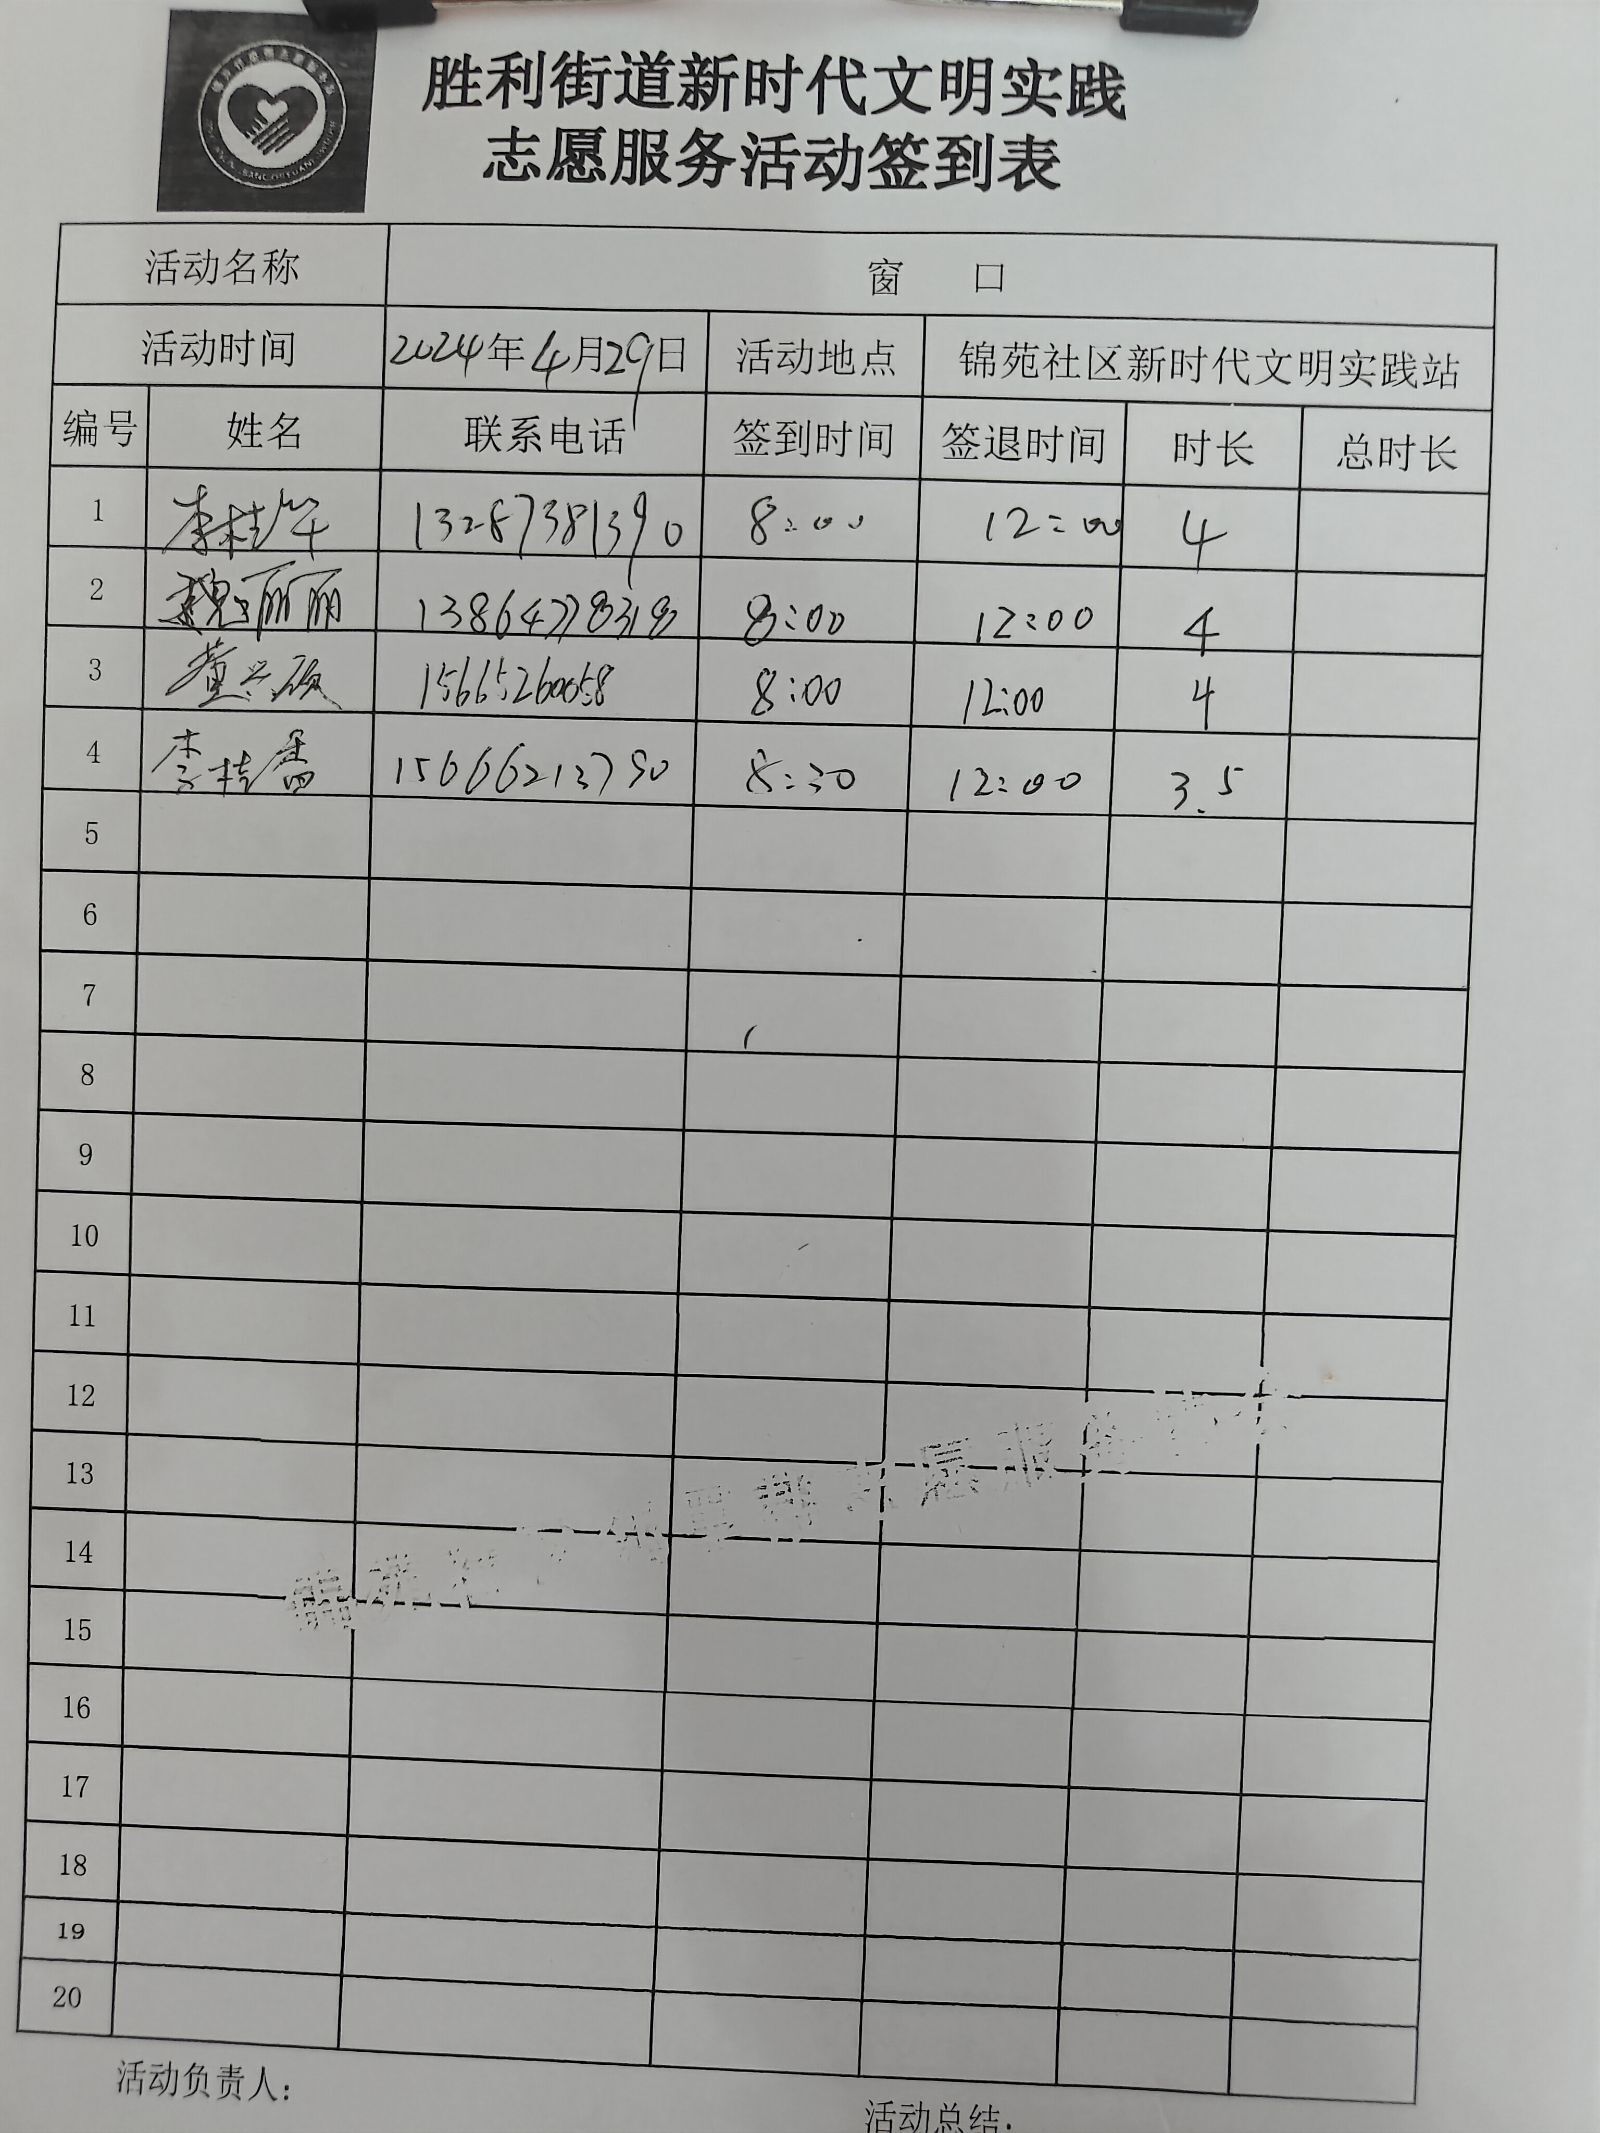 胜利街道新时代文明实践
志愿服务活动签到表
活动名称 窗 口
活动时间 2024年4月29日 活动地点 锦苑社区新时代文明实践站
编号 姓名 联系电话 签到时间 签退时间 时长 总时长
1 李桂华 13287381390 8:00 12:00 4
2 魏丽丽 13864778318 8:00 12:00 4
3 董兰欣 15665260058 8:00 12:00 4
4 李桂香 15666213790 8:30 12:00 3.5
5
6
7
8
9
10
11
12
13
14
15
16
17
18
19
20
活动负责人:
活动总结: